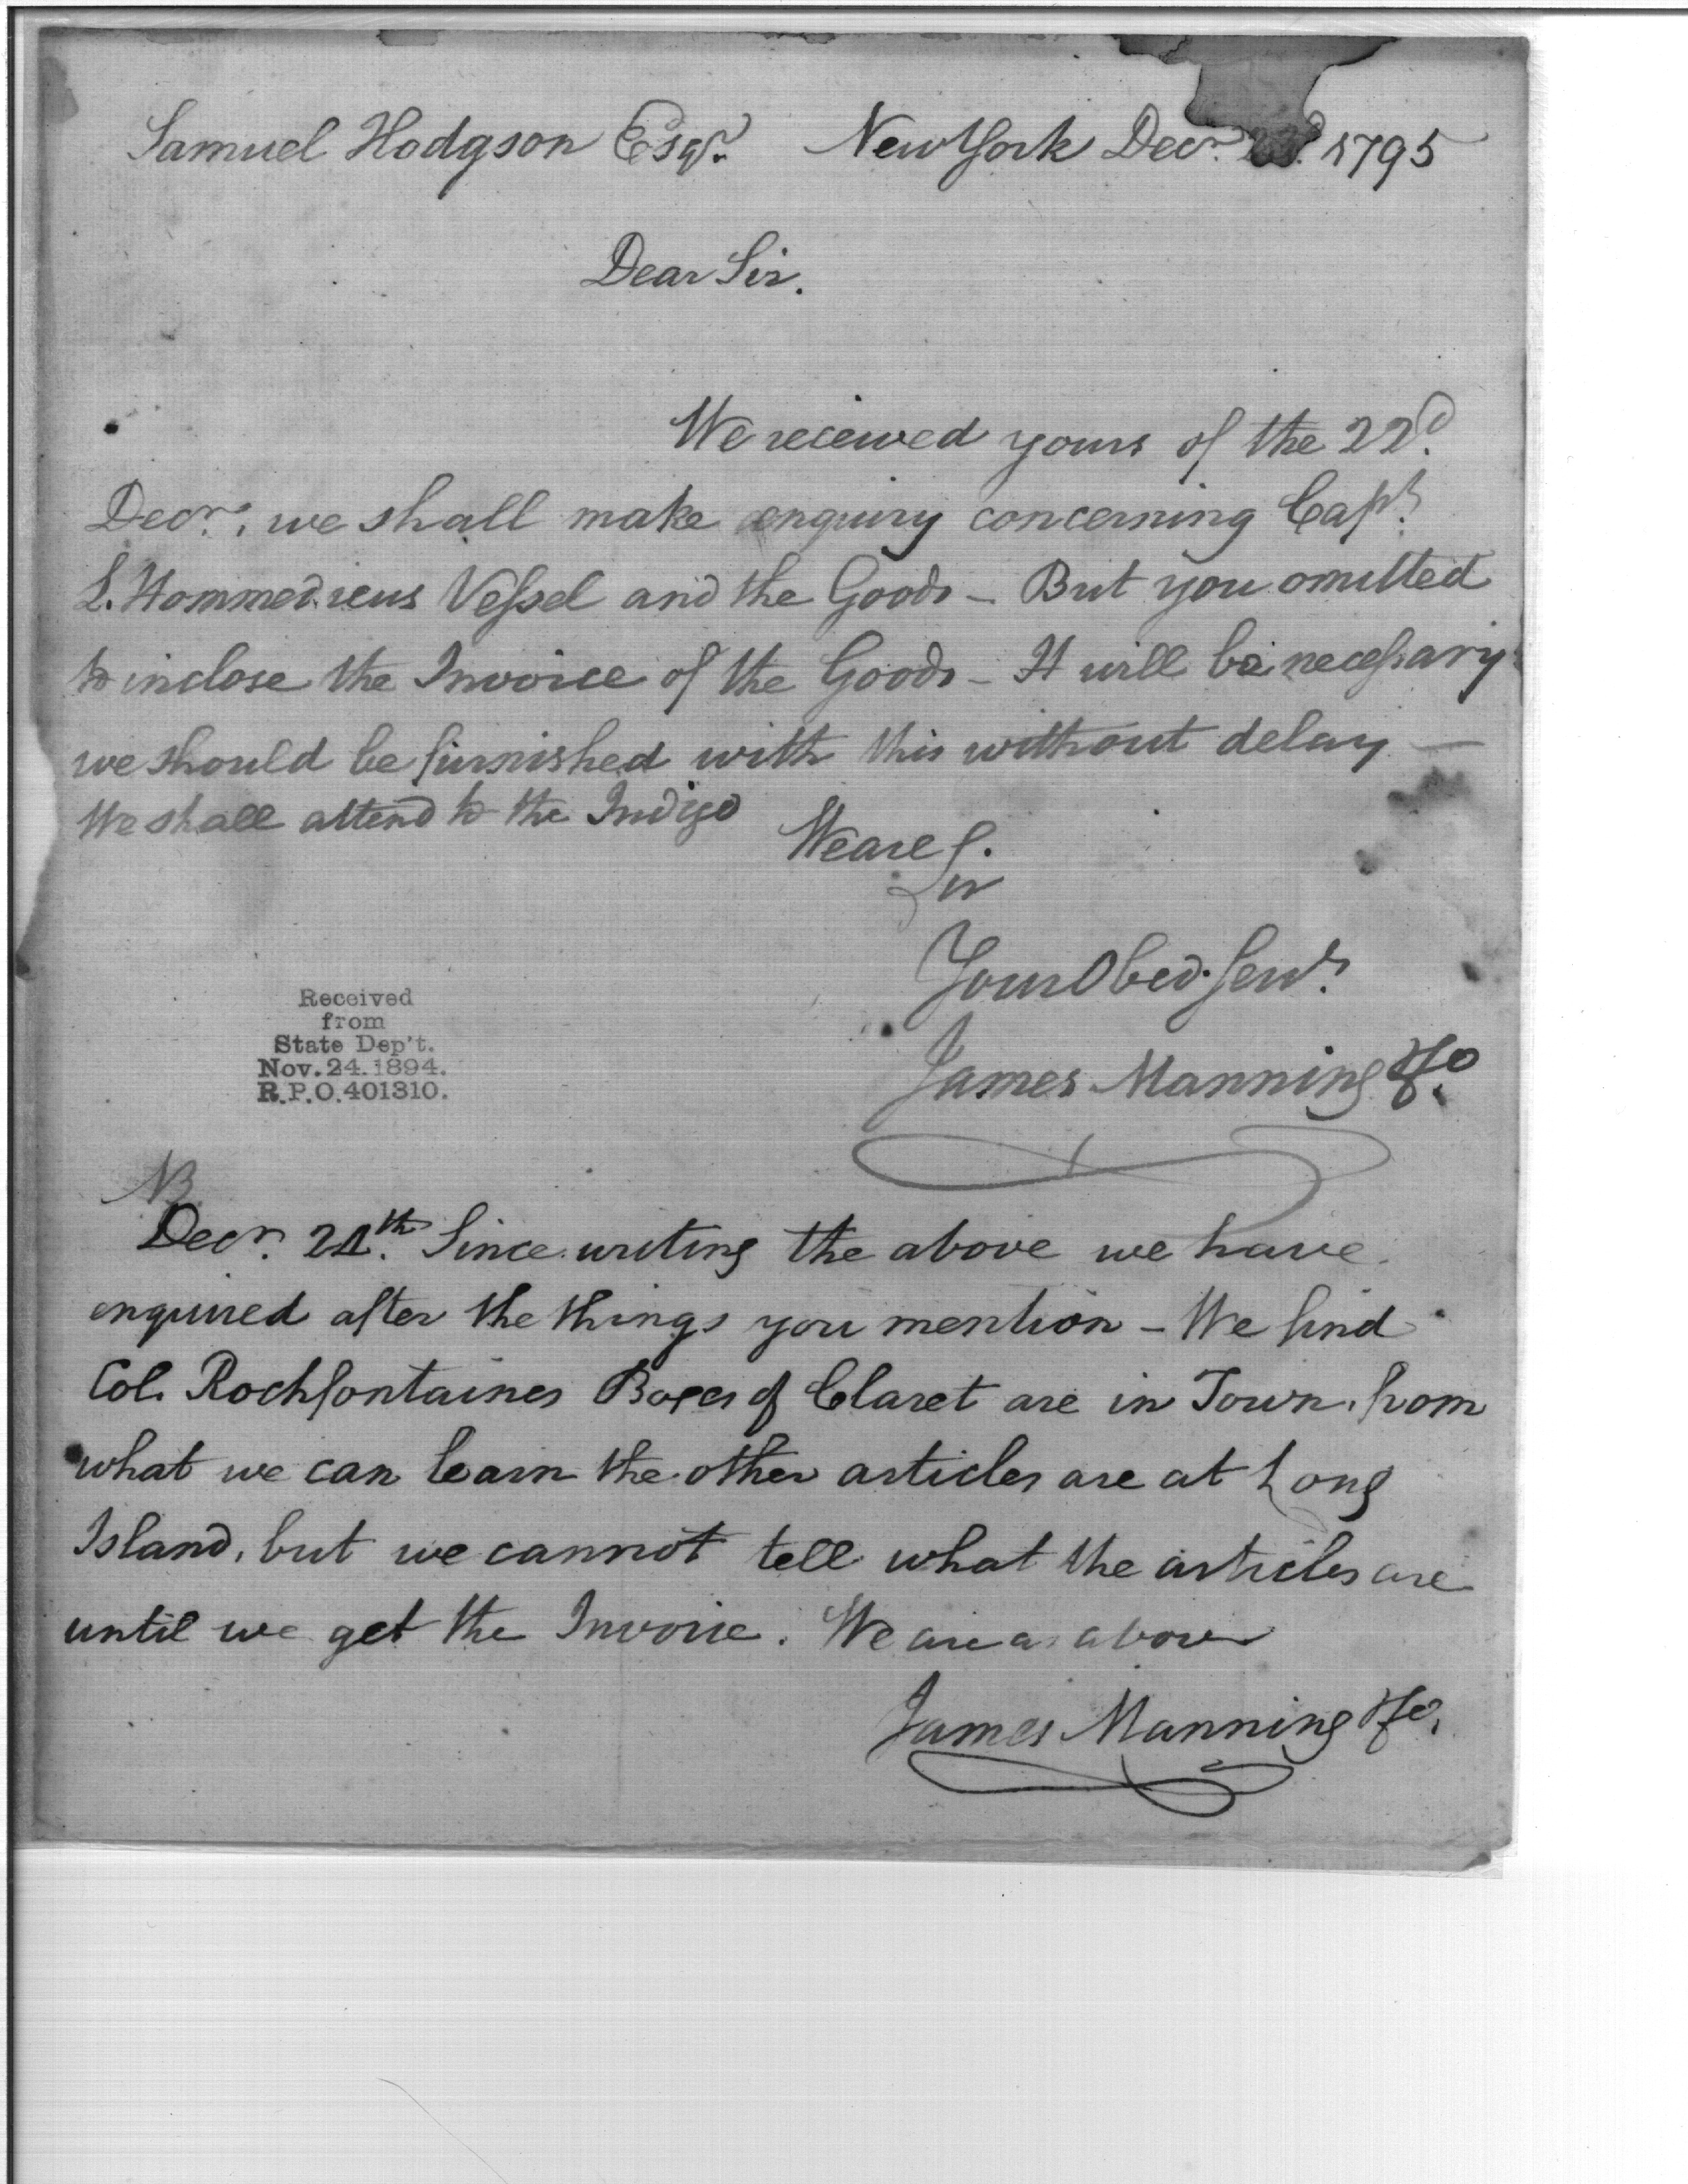 Samuel Hodgson Esqr. New York Decr. 23d. 1795
Dear Sir.
We received yours of the 22d.
Decr., we shall make enquiry concerning Capt.
L.Hommedieus Vessel and the Goods - But you omitted
to inclose the Invoice of the Goods - It will be necessary
we should be furnished with this without delay —
We shall attend to the Indigo
We are S.
Sir
Your Obed. Servt.
James Manning & Co.
Received
from
State Dep't.
Nov. 24. 1894.
R.P.O. 401310.
NB
Decr. 24th. Since writing the above we have
enquired after the things you mention - We find
Col. Rochfontaines Boxes of Claret are in Town. from
what we can learn the other articles are at Long
Island, but we cannot tell what the articles are
until we get the Invoice. We are as above
James Manning & Co.